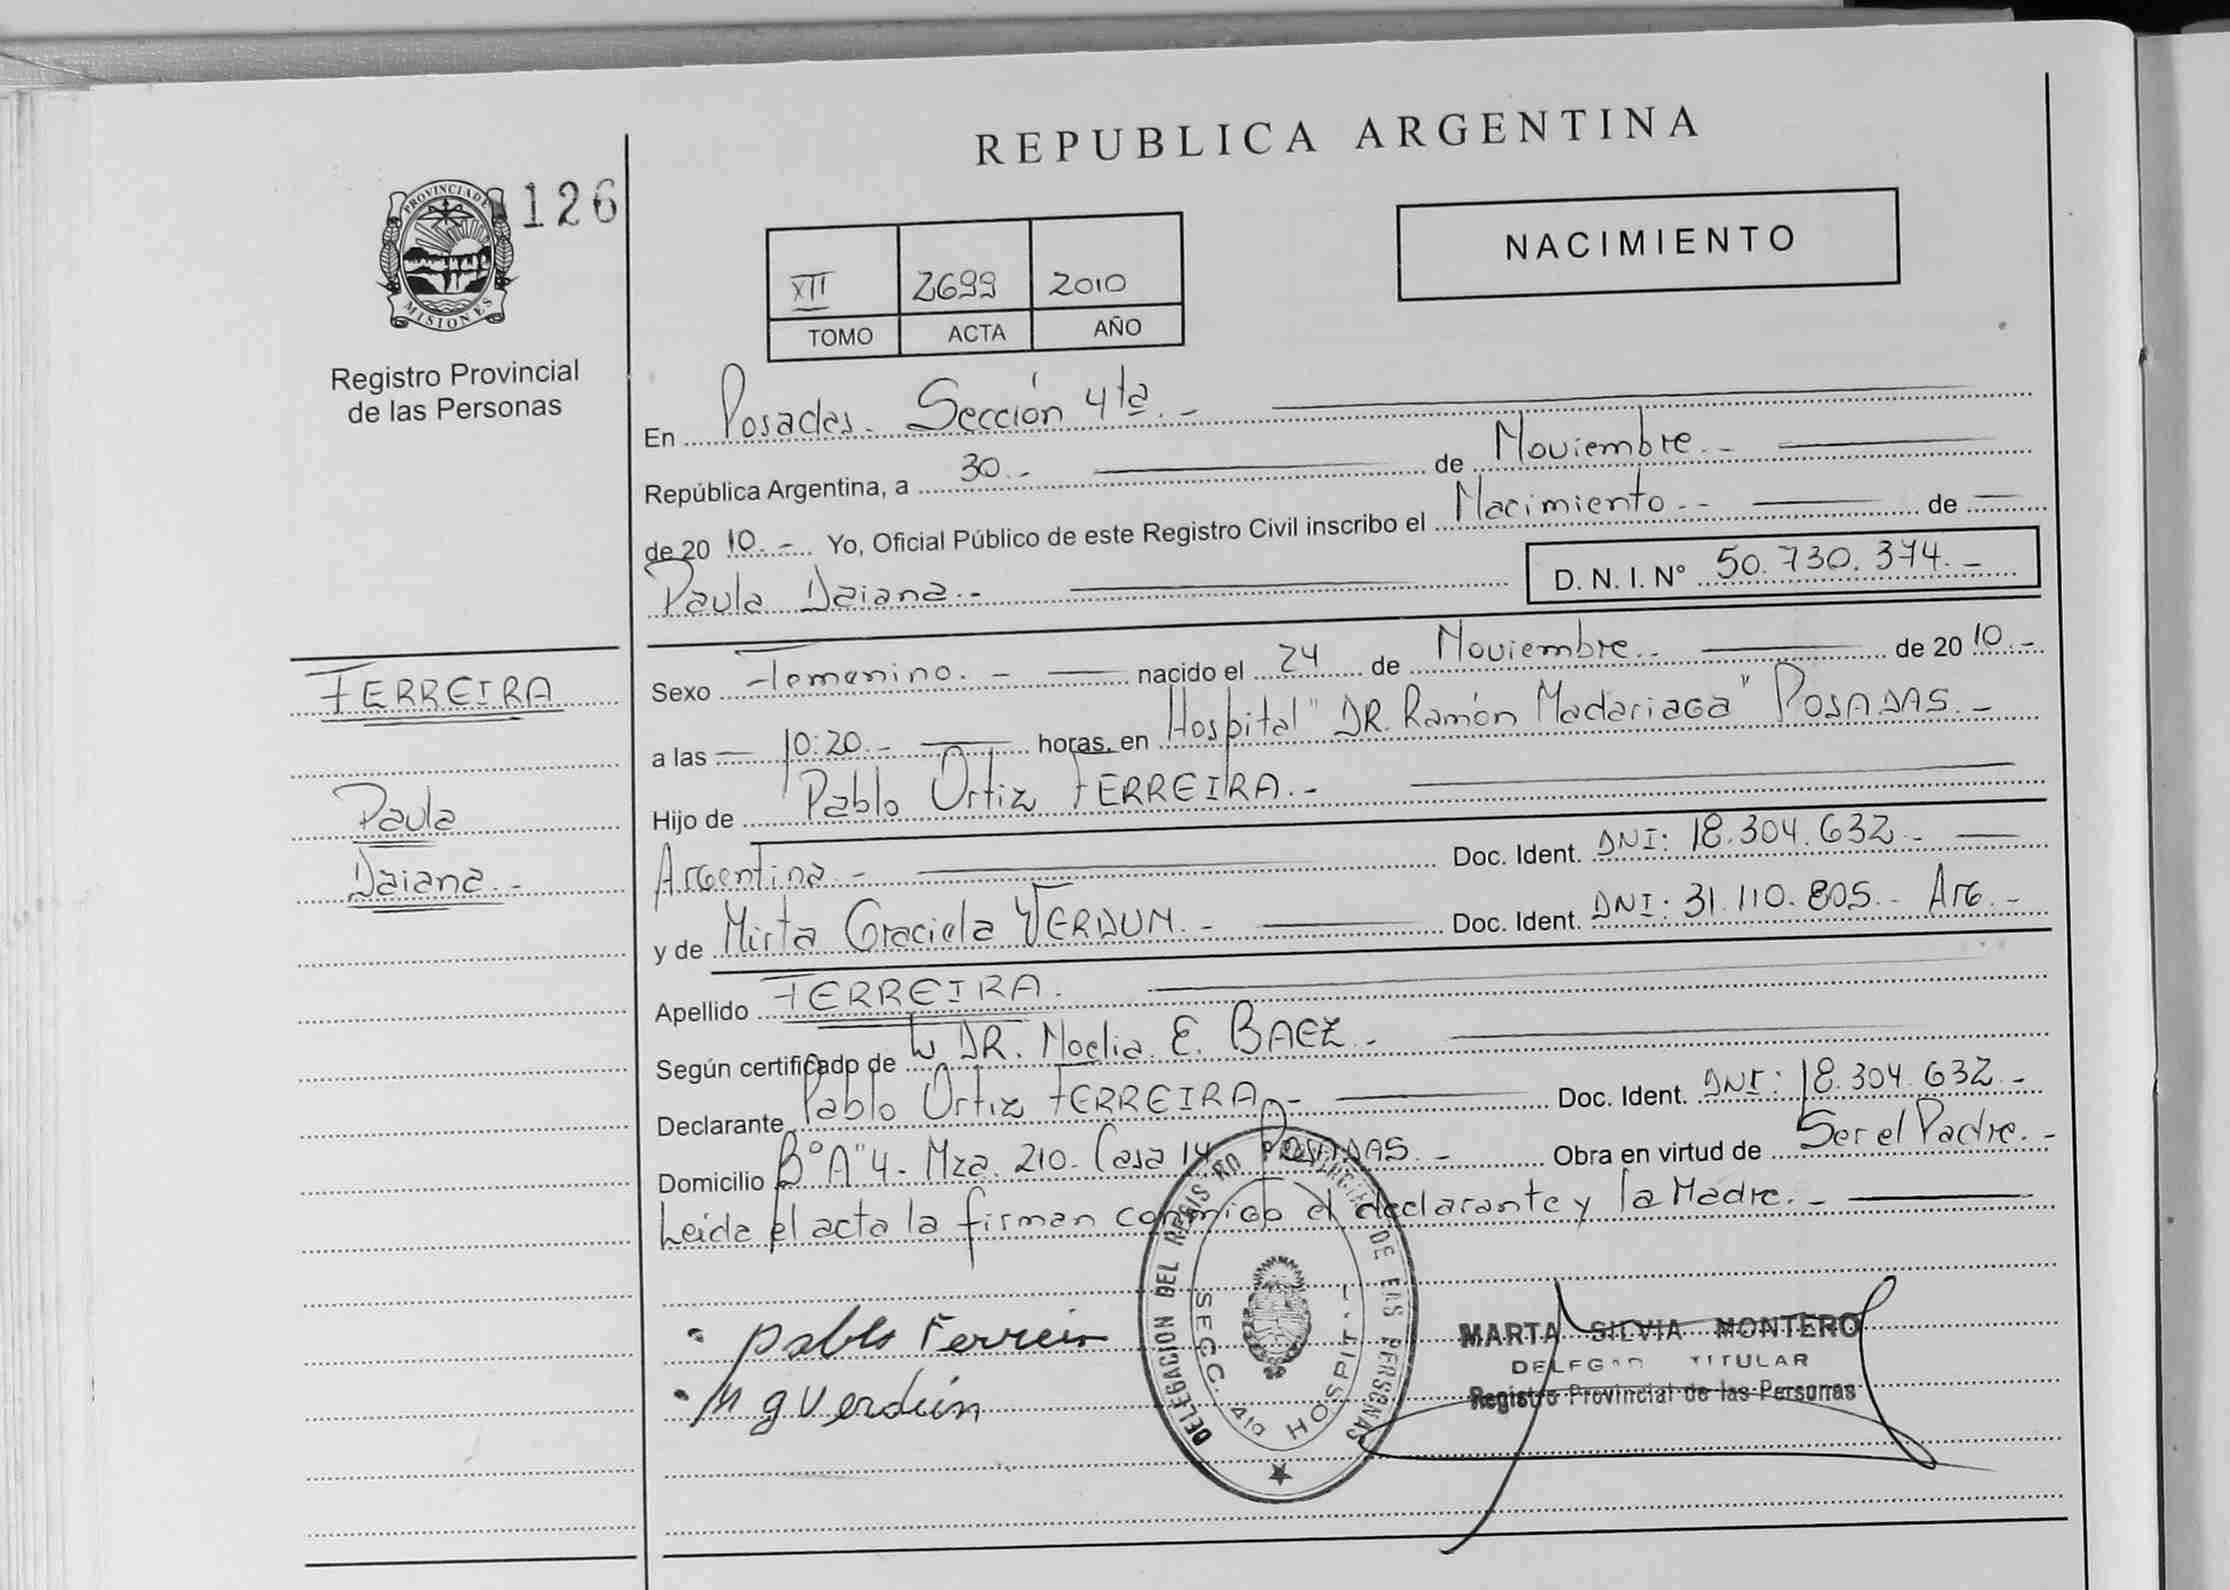 REPUBLICA ARGENTINA
PROVINCIA DE MISIONES
126
Registro Provincial
de las Personas
NACIMIENTO
XII 2699 2010
TOMO ACTA AÑO
En Posadas. Sección 4ta.-
República Argentina, a 30.- de Noviembre.-
de 2010.- Yo, Oficial Público de este Registro Civil inscribo el Nacimiento.- de
Paula Daiana.- D. N. I. N° 50.730.374.-
FERREIRA
Paula
Daiana.-
Sexo Femenino.- nacido el 24 de Noviembre.- de 2010.-
a las 10:20.- horas, en Hospital "DR. Ramón Madariaga" POSADAS.-
Hijo de Pablo Ortiz FERREIRA.-
Argentina.- Doc. Ident. DNI: 18.304.632.-
y de Mirta Graciela VERDUN.- Doc. Ident. DNI: 31.110.805.- Arg.-
Apellido FERREIRA.
Según certificado de DR. Noelia E. BAEZ.-
Declarante Pablo Ortiz FERREIRA.- Doc. Ident. DNI: 18.304.632.-
Domicilio B° A"4- Mza. 210. Casa 14 POSADAS.- Obra en virtud de Ser el Padre.-
Leida el acta la firman conmigo el declarante y la Madre.-
pablo Ferreira
M g Verdún
DELEGACION DEL REGISTRO PROVINCIAL DE LAS PERSONAS
SECC. 4ta HOSPIT.
MARTA SILVIA MONTERO
TITULAR
Registro Provincial de las Personas